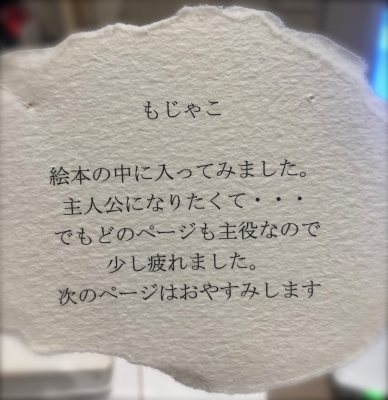 もじゃこ
絵本の中に入ってみました。
主人公になりたくて・・・
でもどのページも主役なので
少し疲れました。
次のページはおやすみします